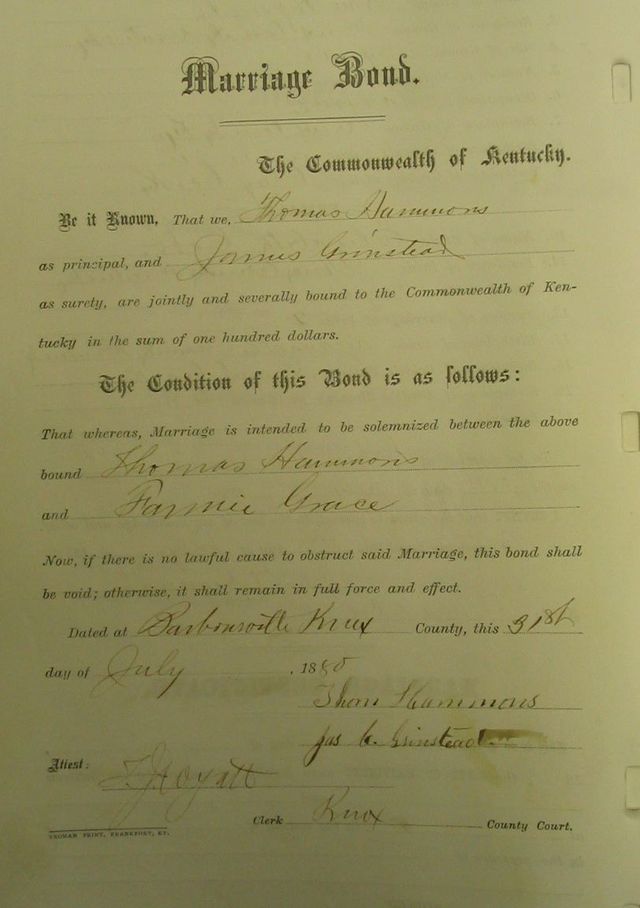 Marriage Bond.
The Commonwealth of Kentucky.
Be it Known, That we, Thomas Hammons
as principal, and James Grinstead
as surety, are jointly and severally bound to the Commonwealth of Ken-
tucky in the sum of one hundred dollars.
The Condition of this Bond is as follows:
That whereas, Marriage is intended to be solemnized between the above
bound Thomas Hammons
and Farmie Grace
Now, if there is no lawful cause to obstruct said Marriage, this bond shall
be void; otherwise, it shall remain in full force and effect.
Dated at Barbourville Knox County, this 31st
day of July, 1880
Thom Hammons
Jas C. Grinstead
Attest:
Clerk Knox County Court.
YEOMAN PRINT, FRANKFORT, KY.